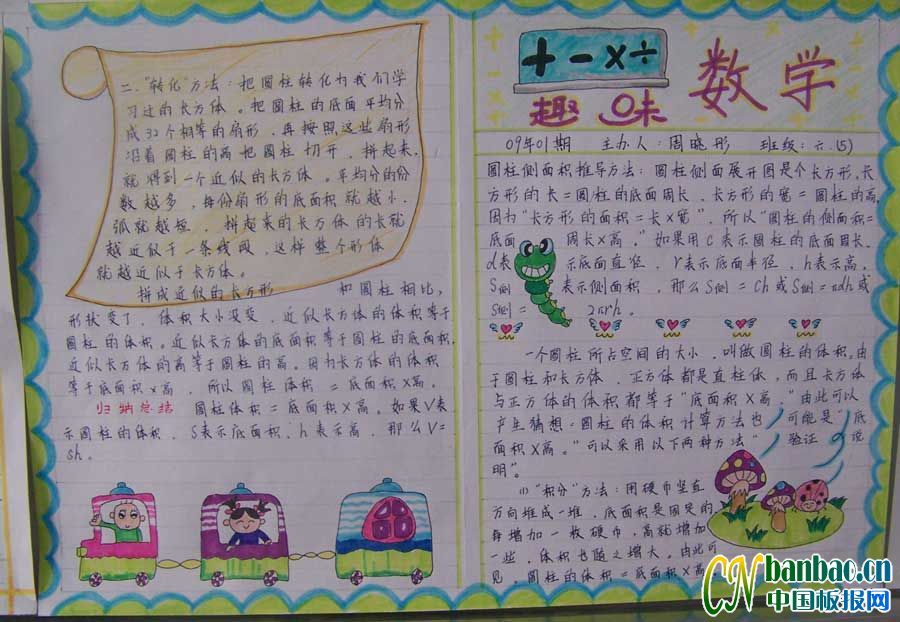 + - × ÷
趣味数学
09年01期 主办人：周晓彤 班级：六.(5)
圆柱侧面积推导方法：圆柱侧面展开图是个长方形，长
方形的长=圆柱的底面周长，长方形的宽=圆柱的高，
因为“长方形的面积=长×宽”，所以“圆柱的侧面积=
底面周长×高。”如果用C表示圆柱的底面周长，
d表示底面直径，r表示底面半径，h表示高，
S侧表示侧面积，那么S侧=Ch或S侧=πdh或
S侧=2πrh。
一个圆柱所占空间的大小，叫做圆柱的体积。由
于圆柱和长方体、正方体都是直柱体，而且长方体
与正方体的体积都等于“底面积×高，”由此可以
产生猜想：圆柱的体积计算方法也可能是“底
面积×高。”可以采用以下两种方法“验证说
明”。
(1)“积分”方法：用硬币竖直
方向堆成一堆，底面积是固定的，
每增加一枚硬币，高就增加
一些，体积也随之增大。由此可
见，圆柱的体积=底面积×高
二、“转化”方法：把圆柱转化为我们学
习过的长方体。把圆柱的底面平均分
成32个相等的扇形，再按照这些扇形
沿着圆柱的高把圆柱切开，拼起来，
就得到一个近似的长方体。平均分的份
数越多，每份扇形的底面积就越小，
弧就越短，拼起来的长方体的长就
越近似于一条线段，这样整个形体
就越近似于长方体。
拼成近似的长方形和圆柱相比，
形状变了，体积大小没变，近似长方体的体积等于
圆柱的体积。近似长方体的底面积等于圆柱的底面积，
近似长方体的高等于圆柱的高。因为长方体的体积
等于底面积×高，所以圆柱体积=底面积×高。
归纳总结 圆柱体积=底面积×高。如果V表
示圆柱的体积，S表示底面积，h表示高，那么V=
sh。
CN banbao.cn
中国板报网